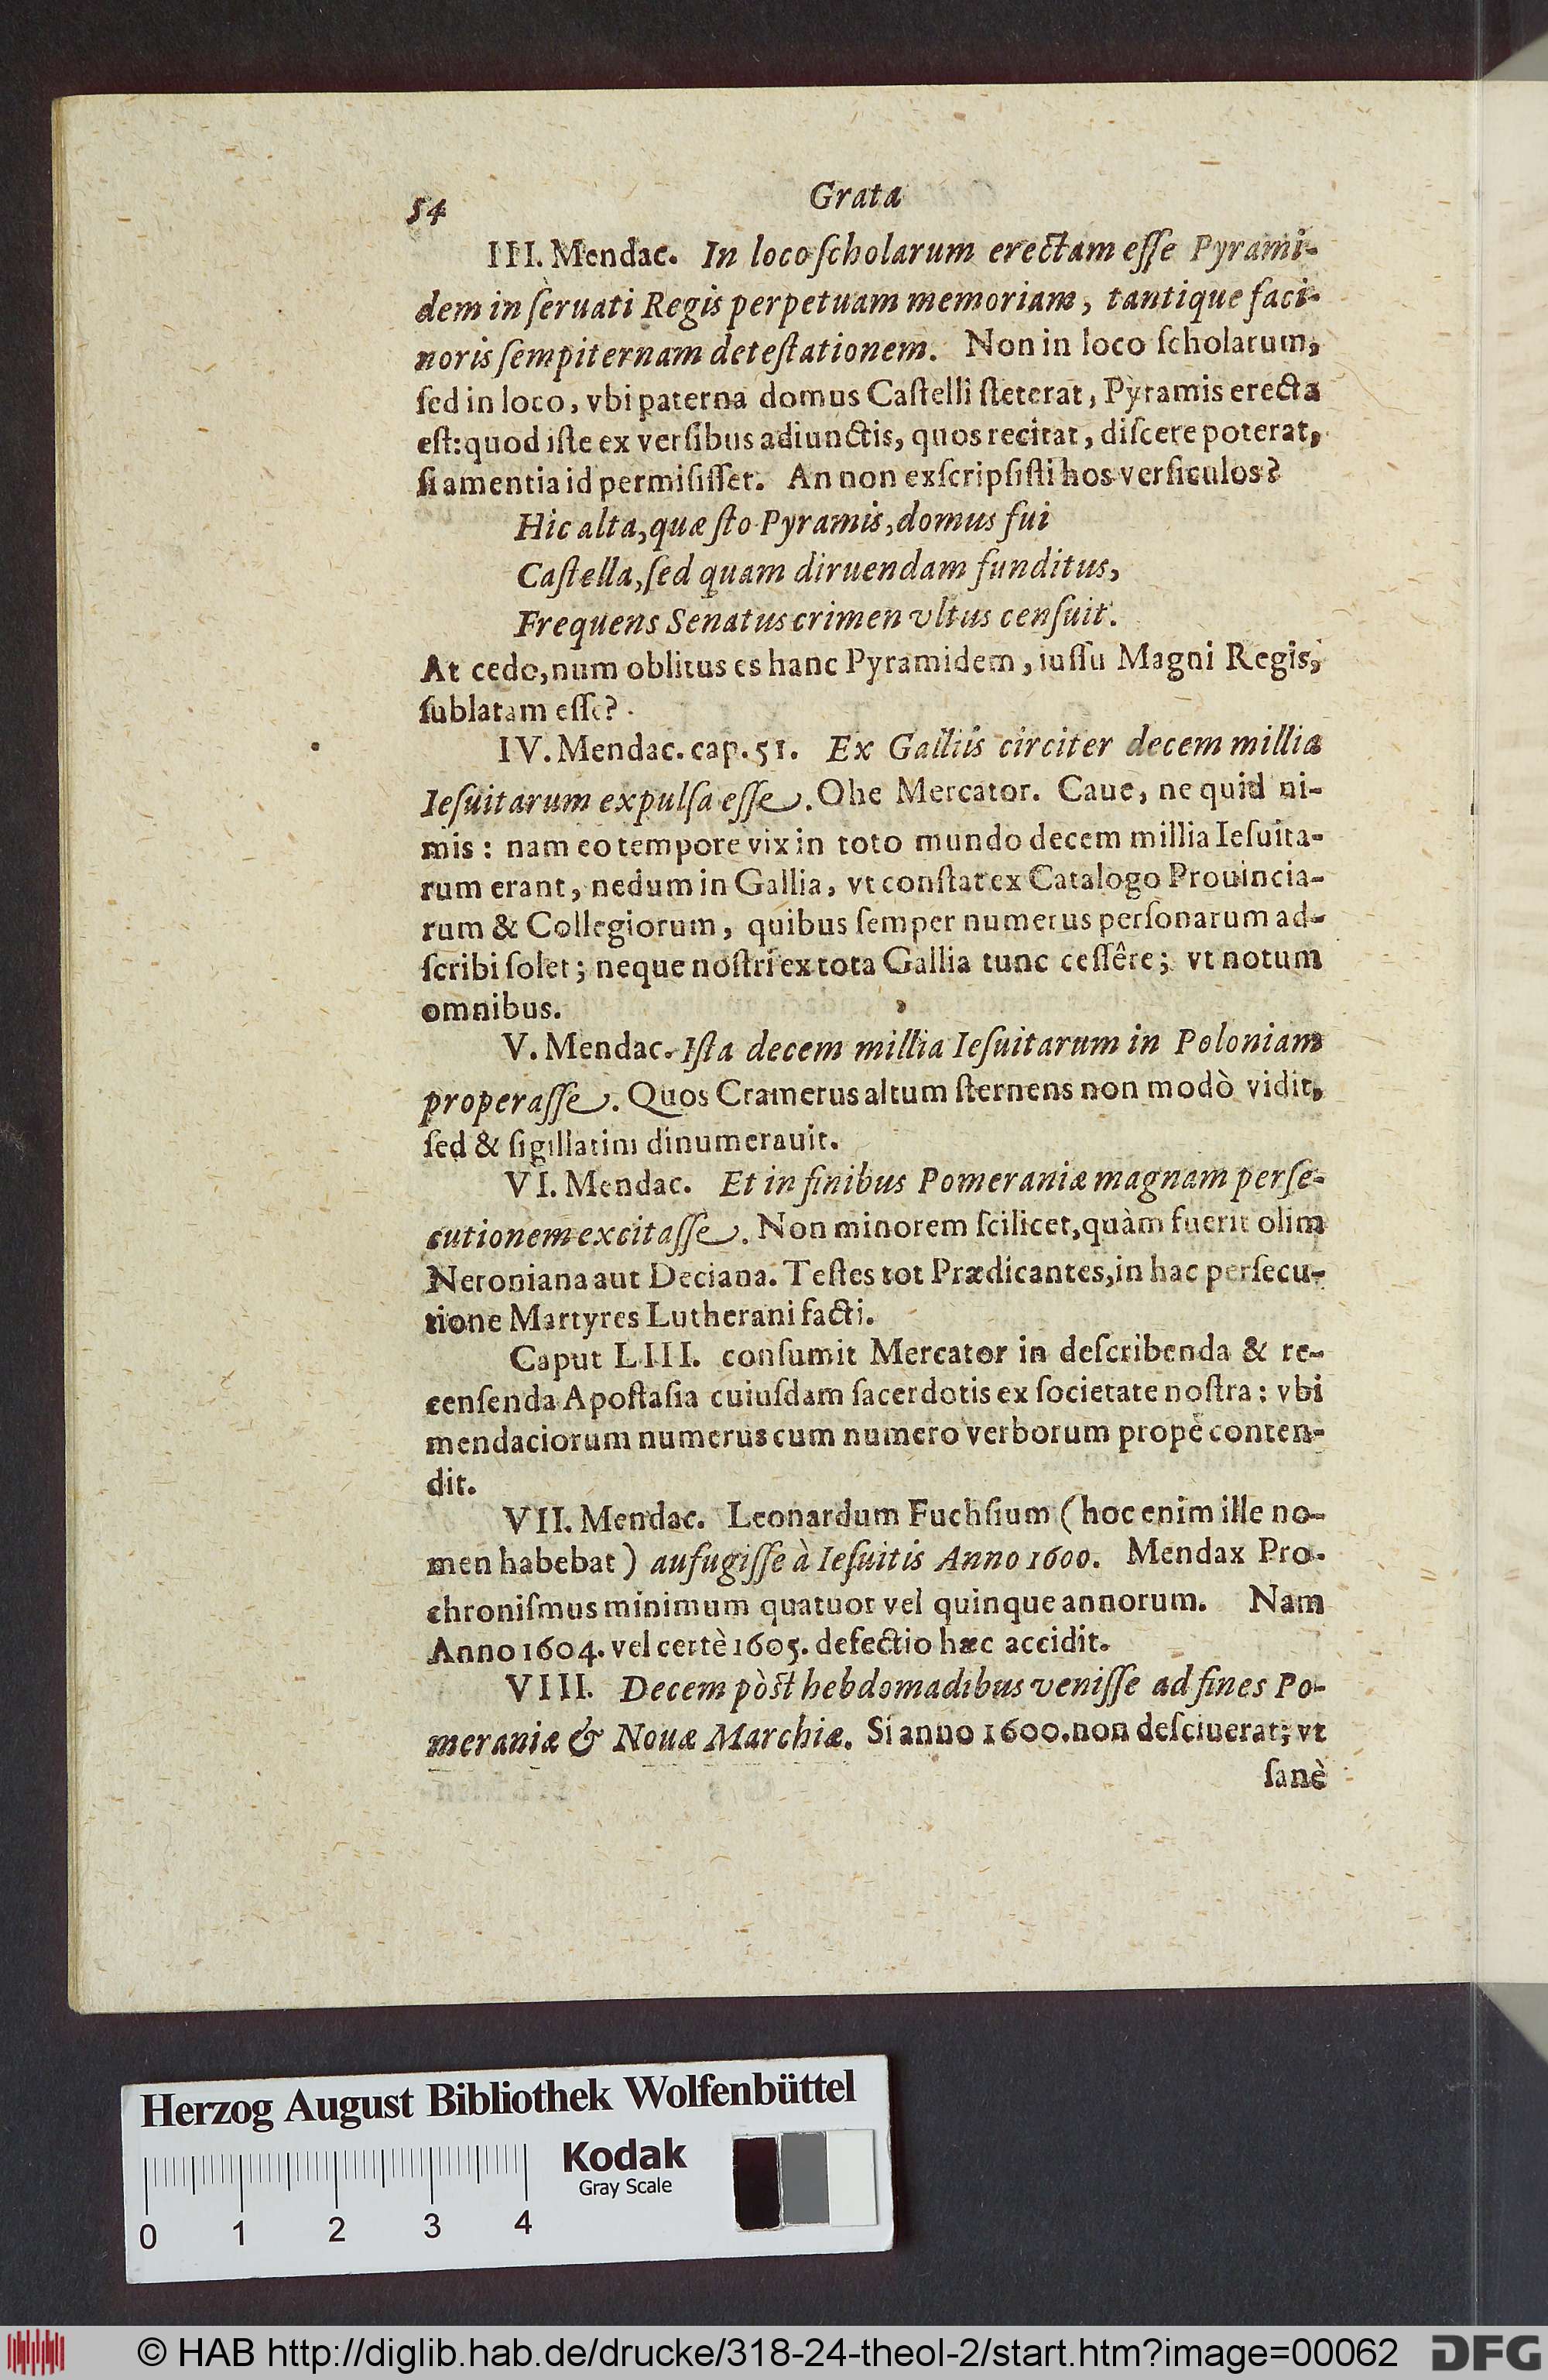 54 Grata
III. Mendac. In loco ſcholarum erectam eſſe Pyrami-
dem in ſeruati Regis perpetuam memoriam, tantique faci-
noris ſempiternam deteſtationem. Non in loco ſcholarum,
ſed in loco, vbi paterna domus Caſtelli ſteterat, Pyramis erecta
eſt: quod iſte ex verſibus adiunctis, quos recitat, diſcere poterat,
ſi amentia id permiſiſſet. An non exſcripſiſti hos verſiculos?
Hic alta, quæ ſto Pyramis, domus fui
Caſtella, ſed quam diruendam funditus,
Frequens Senatus crimen vltus cenſuit.
At cedo, num oblitus es hanc Pyramidem, iuſſu Magni Regis,
ſublatam eſſe?
IV. Mendac. cap. 51. Ex Galliis circiter decem millia
Ieſuitarum expulſa eſſe. Ohe Mercator. Caue, ne quid ni-
mis: nam eo tempore vix in toto mundo decem millia Ieſuita-
rum erant, nedum in Gallia, vt conſtat ex Catalogo Prouincia-
rum & Collegiorum, quibus ſemper numerus perſonarum ad-
ſcribi ſolet; neque noſtri ex tota Gallia tunc ceſſêre; vt notum
omnibus.
V. Mendac. Iſta decem millia Ieſuitarum in Poloniam
properaſſe. Quos Cramerus altum ſternens non modò vidit,
ſed & ſigillatim dinumerauit.
VI. Mendac. Et in finibus Pomeraniæ magnam perſe-
cutionem excitaſſe. Non minorem ſcilicet, quàm fuerit olim
Neroniana aut Deciana. Teſtes tot Prædicantes, in hac perſecu-
tione Martyres Lutherani facti.
Caput LIII. conſumit Mercator in deſcribenda & re-
cenſenda Apoſtaſia cuiuſdam ſacerdotis ex ſocietate noſtra: vbi
mendaciorum numerus cum numero verborum propè conten-
dit.
VII. Mendac. Leonardum Fuchſium (hoc enim ille no-
men habebat) aufugiſſe à Ieſuitis Anno 1600. Mendax Pro-
chroniſmus minimum quatuor vel quinque annorum. Nam
Anno 1604. vel certè 1605. defectio hæc accidit.
VIII. Decem pòſt hebdomadibus veniſſe ad fines Po-
meraniæ & Nouæ Marchiæ. Si anno 1600. non deſciuerat; vt
ſanè
Herzog August Bibliothek Wolfenbüttel
Kodak
Gray Scale
0 1 2 3 4
© HAB http://diglib.hab.de/drucke/318-24-theol-2/start.htm?image=00062 DFG